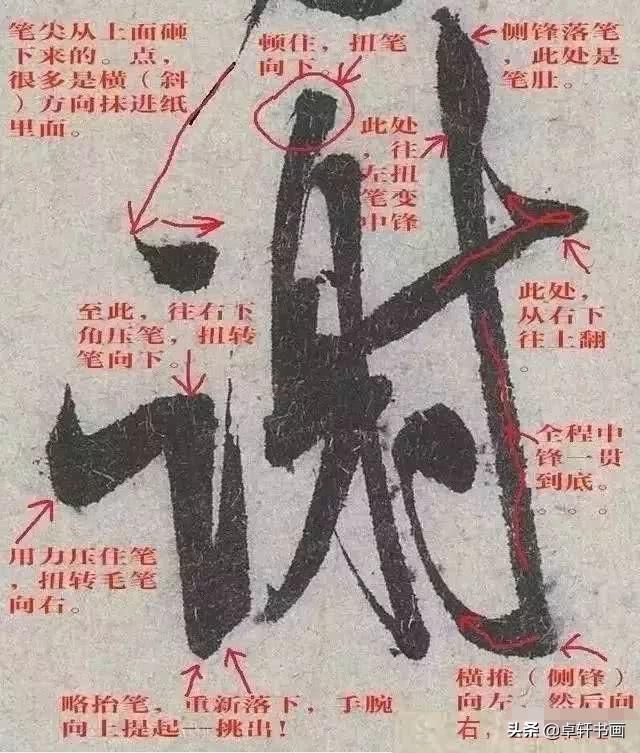 笔尖从上面砸
下来的。点，
很多是横（斜
）方向抹进纸
里面。
顿住，扭笔
向下。
侧锋落笔
，此处是
笔肚。
此处
，往
左扭
笔变
中锋
謝
至此，往右下
角压笔，扭转
笔向下。
此处，
从右下
往上翻
。
全程中
锋一贯
到底。
。。。
用力压住笔
，扭转毛笔
向右。
略抬笔，重新落下，手腕
向上提起--挑出！
横推（侧锋）
向左，然后向
右，
头条 @卓轩书画